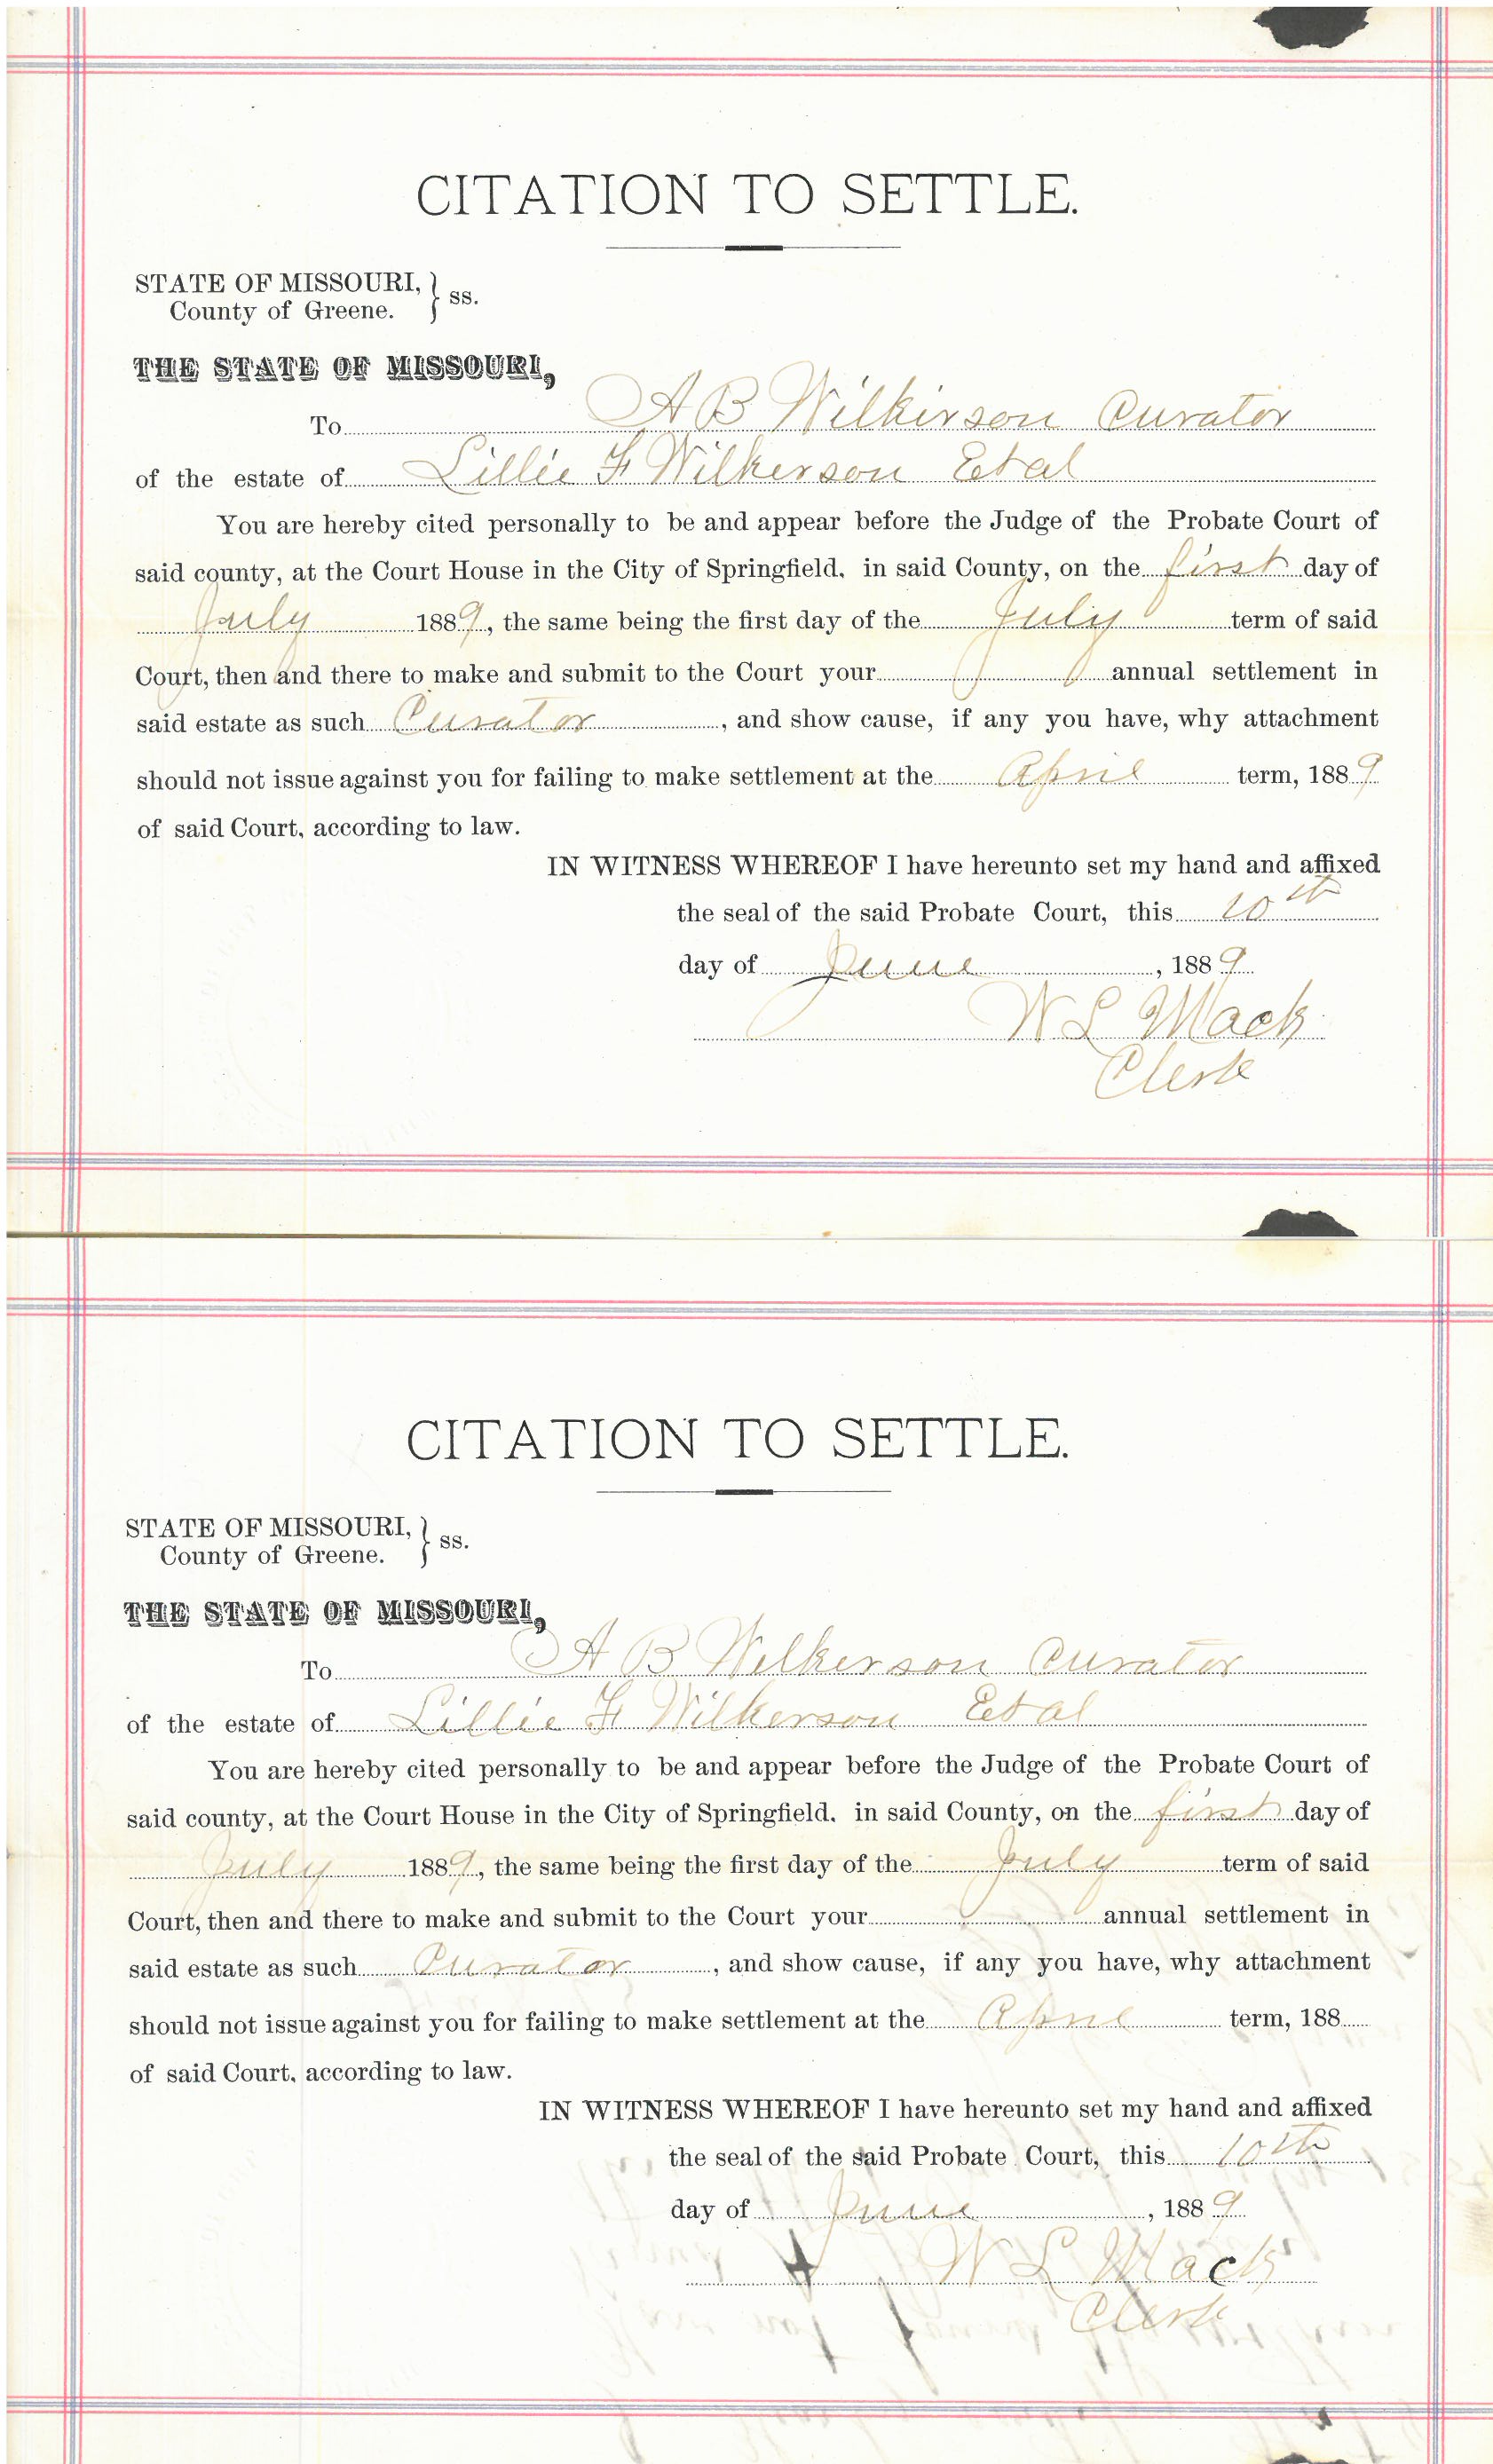 CITATION TO SETTLE.
STATE OF MISSOURI, } ss.
County of Greene.
THE STATE OF MISSOURI,
To A B Wilkirson Curator
of the estate of Lillie F Wilkerson Et al
You are hereby cited personally to be and appear before the Judge of the Probate Court of
said county, at the Court House in the City of Springfield, in said County, on the first day of
July 1889, the same being the first day of the July term of said
Court, then and there to make and submit to the Court your annual settlement in
said estate as such Curator, and show cause, if any you have, why attachment
should not issue against you for failing to make settlement at the April term, 1889
of said Court, according to law.
IN WITNESS WHEREOF I have hereunto set my hand and affixed
the seal of the said Probate Court, this 10th
day of June, 1889
W L Mack
Clerk
CITATION TO SETTLE.
STATE OF MISSOURI, } ss.
County of Greene.
THE STATE OF MISSOURI,
To A B Wilkerson Curator
of the estate of Lillie F Wilkerson Et al
You are hereby cited personally to be and appear before the Judge of the Probate Court of
said county, at the Court House in the City of Springfield, in said County, on the first day of
July 1889, the same being the first day of the July term of said
Court, then and there to make and submit to the Court your annual settlement in
said estate as such Curator, and show cause, if any you have, why attachment
should not issue against you for failing to make settlement at the April term, 188
of said Court, according to law.
IN WITNESS WHEREOF I have hereunto set my hand and affixed
the seal of the said Probate Court, this 10th
day of June, 1889
W L Mack
Clerk